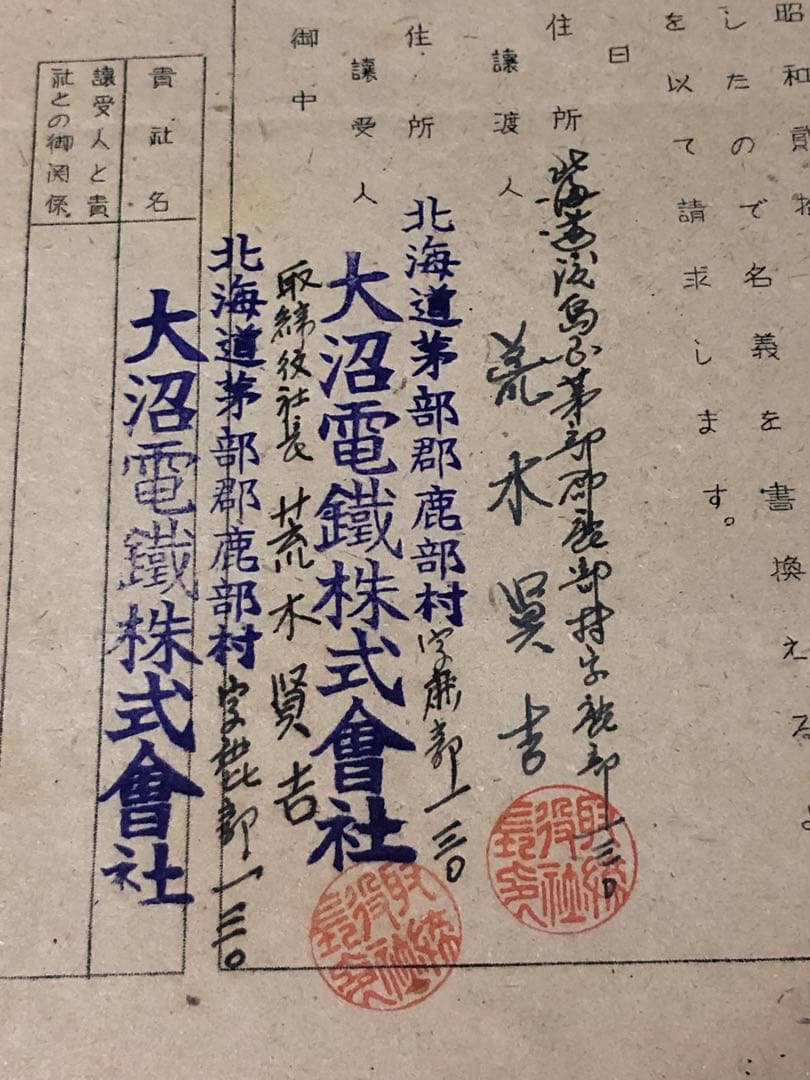 昭和貳拾
したので名義を書換える
を以て請求します。
日
住所 北海道渡島国茅部郡鹿部村字鹿部一三〇
譲渡人 荒木賢吉
住所 北海道茅部郡鹿部村字鹿部一三〇
譲受人 大沼電鐵株式會社
取締役社長 荒木賢吉
御中
北海道茅部郡鹿部村字鹿部一三〇
貴社名 大沼電鐵株式會社
譲受人と貴
社との御関係
取締
役社
長
取締
役社
長